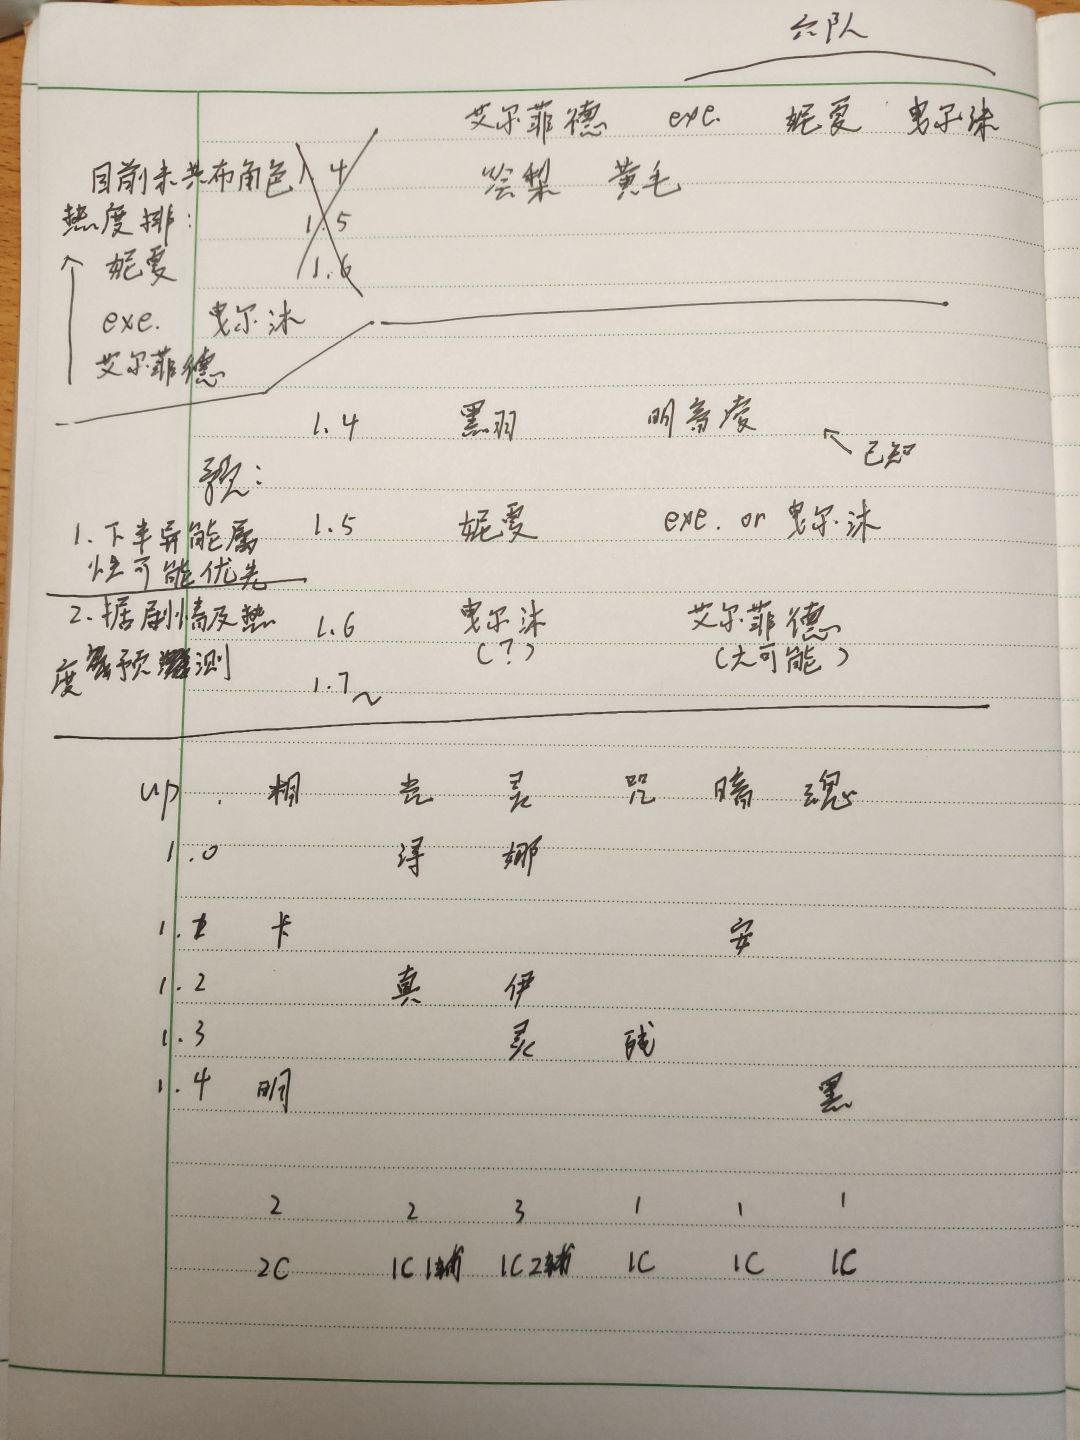 六队
艾尔菲德 exe. 妮戛 曳尔沐
目前未共布角色 1.4 绘梨 黄毛
热度排: 1.5
妮戛 1.6
exe. 曳尔沐
艾尔菲德
1.4 黑羽 明
已知
1.5 妮戛 exe. or 曳尔沐
1.下半异能属
性可能优先
2.据剧情及热 1.6 曳尔沐 艾尔菲德
(?) (大可能)
度 预测
1.7~
up. 相 光 灵 咒 暗 魂
1.0 浔 娜
1.1 卡 安
1.2 真 伊
1.3 灵
1.4 明 黑
2 2 3 1 1 1
2C 1C1辅 1C2辅 1C 1C 1C